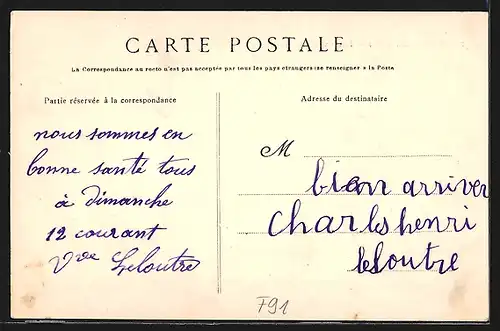 CARTE POSTALE
La Correspondance au recto n'est pas acceptée par tous les pays étrangers (se renseigner à la Poste
Partie réservée à la correspondance
nous sommes en
bonne santé tous
à dimanche
12 courant
Vve Leloutre
Adresse du destinataire
M
bien arriver
Charles henri
leloutre
F91